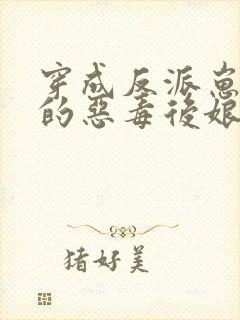 穿成反派崽
的惡毒後娘
猪好美